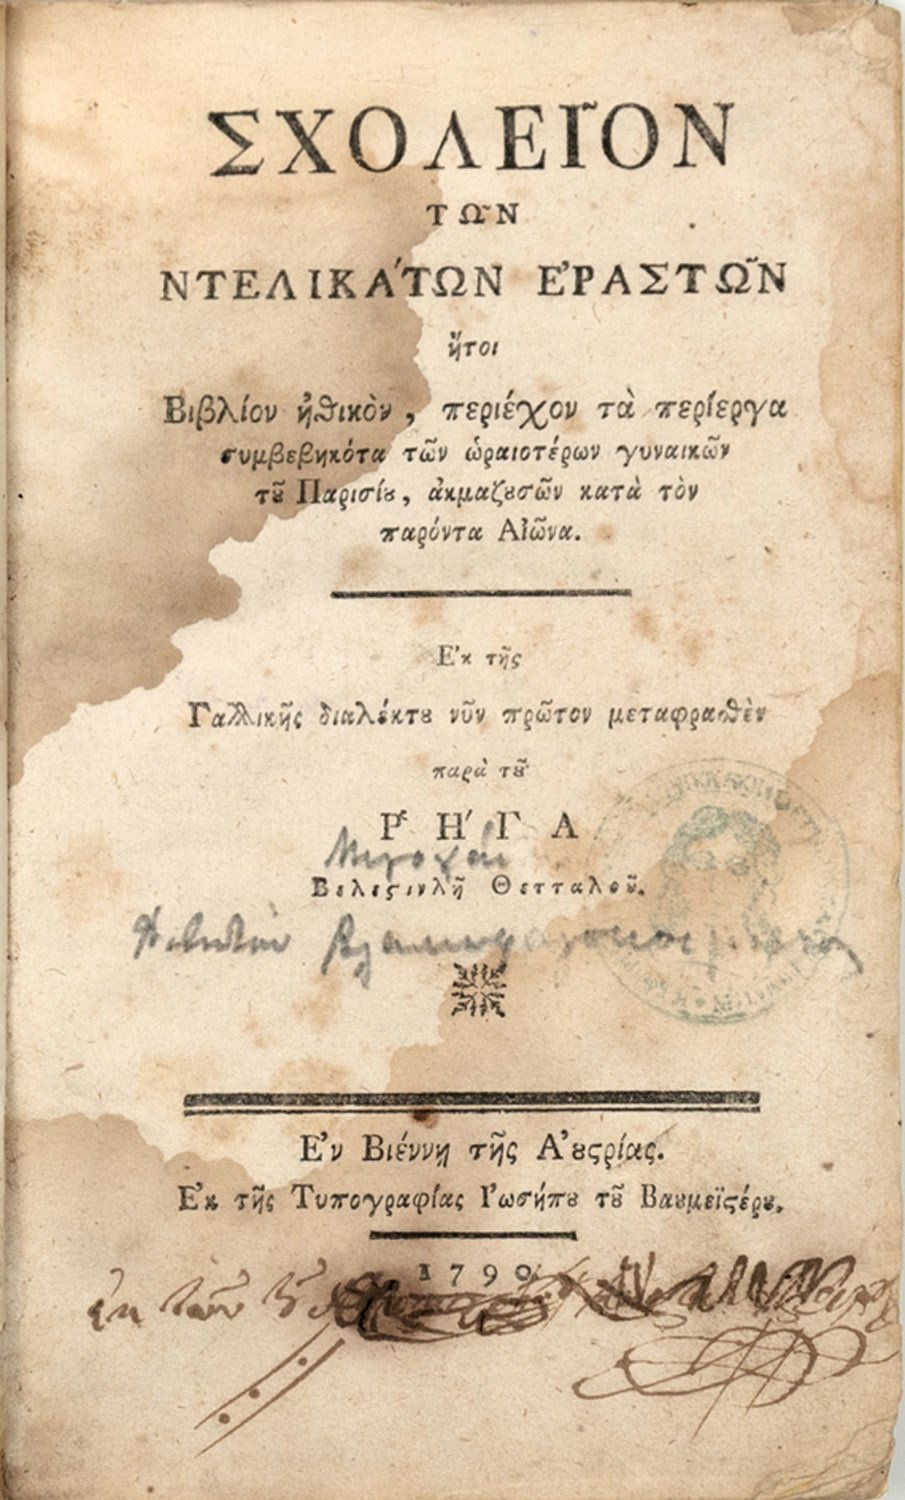 ΣΧΟΛΕΙ͂ΟΝ
ΤΩ͂Ν
ΝΤΕΛΙΚΆΤΩΝ ἘΡΑΣΤΩ͂Ν
ἤτοι
Βιβλίον ἠθικὸν, περιέχον τὰ περίεργα
συμβεβηκότα τῶν ὡραιοτέρων γυναικῶν
τȣ͂ Παρισίȣ, ἀκμαζȣσῶν κατὰ τὸν
παρόντα Αἰῶνα.
Ἐκ τῆς
Γαλλικῆς διαλέκτȣ νῦν πρῶτον μεταφρασθὲν
παρὰ τȣ͂
ῬΉΓΑ
Βελεϛινλῆ Θετταλοῦ.
Ἐν Βιέννῃ τῆς Ἀȣϛρίας.
Ἐκ τῆς Τυπογραφίας Ἰωσήπȣ τȣ͂ Βαȣμεϊϛέρȣ.
1790
ἐκ τῶν τȣ͂